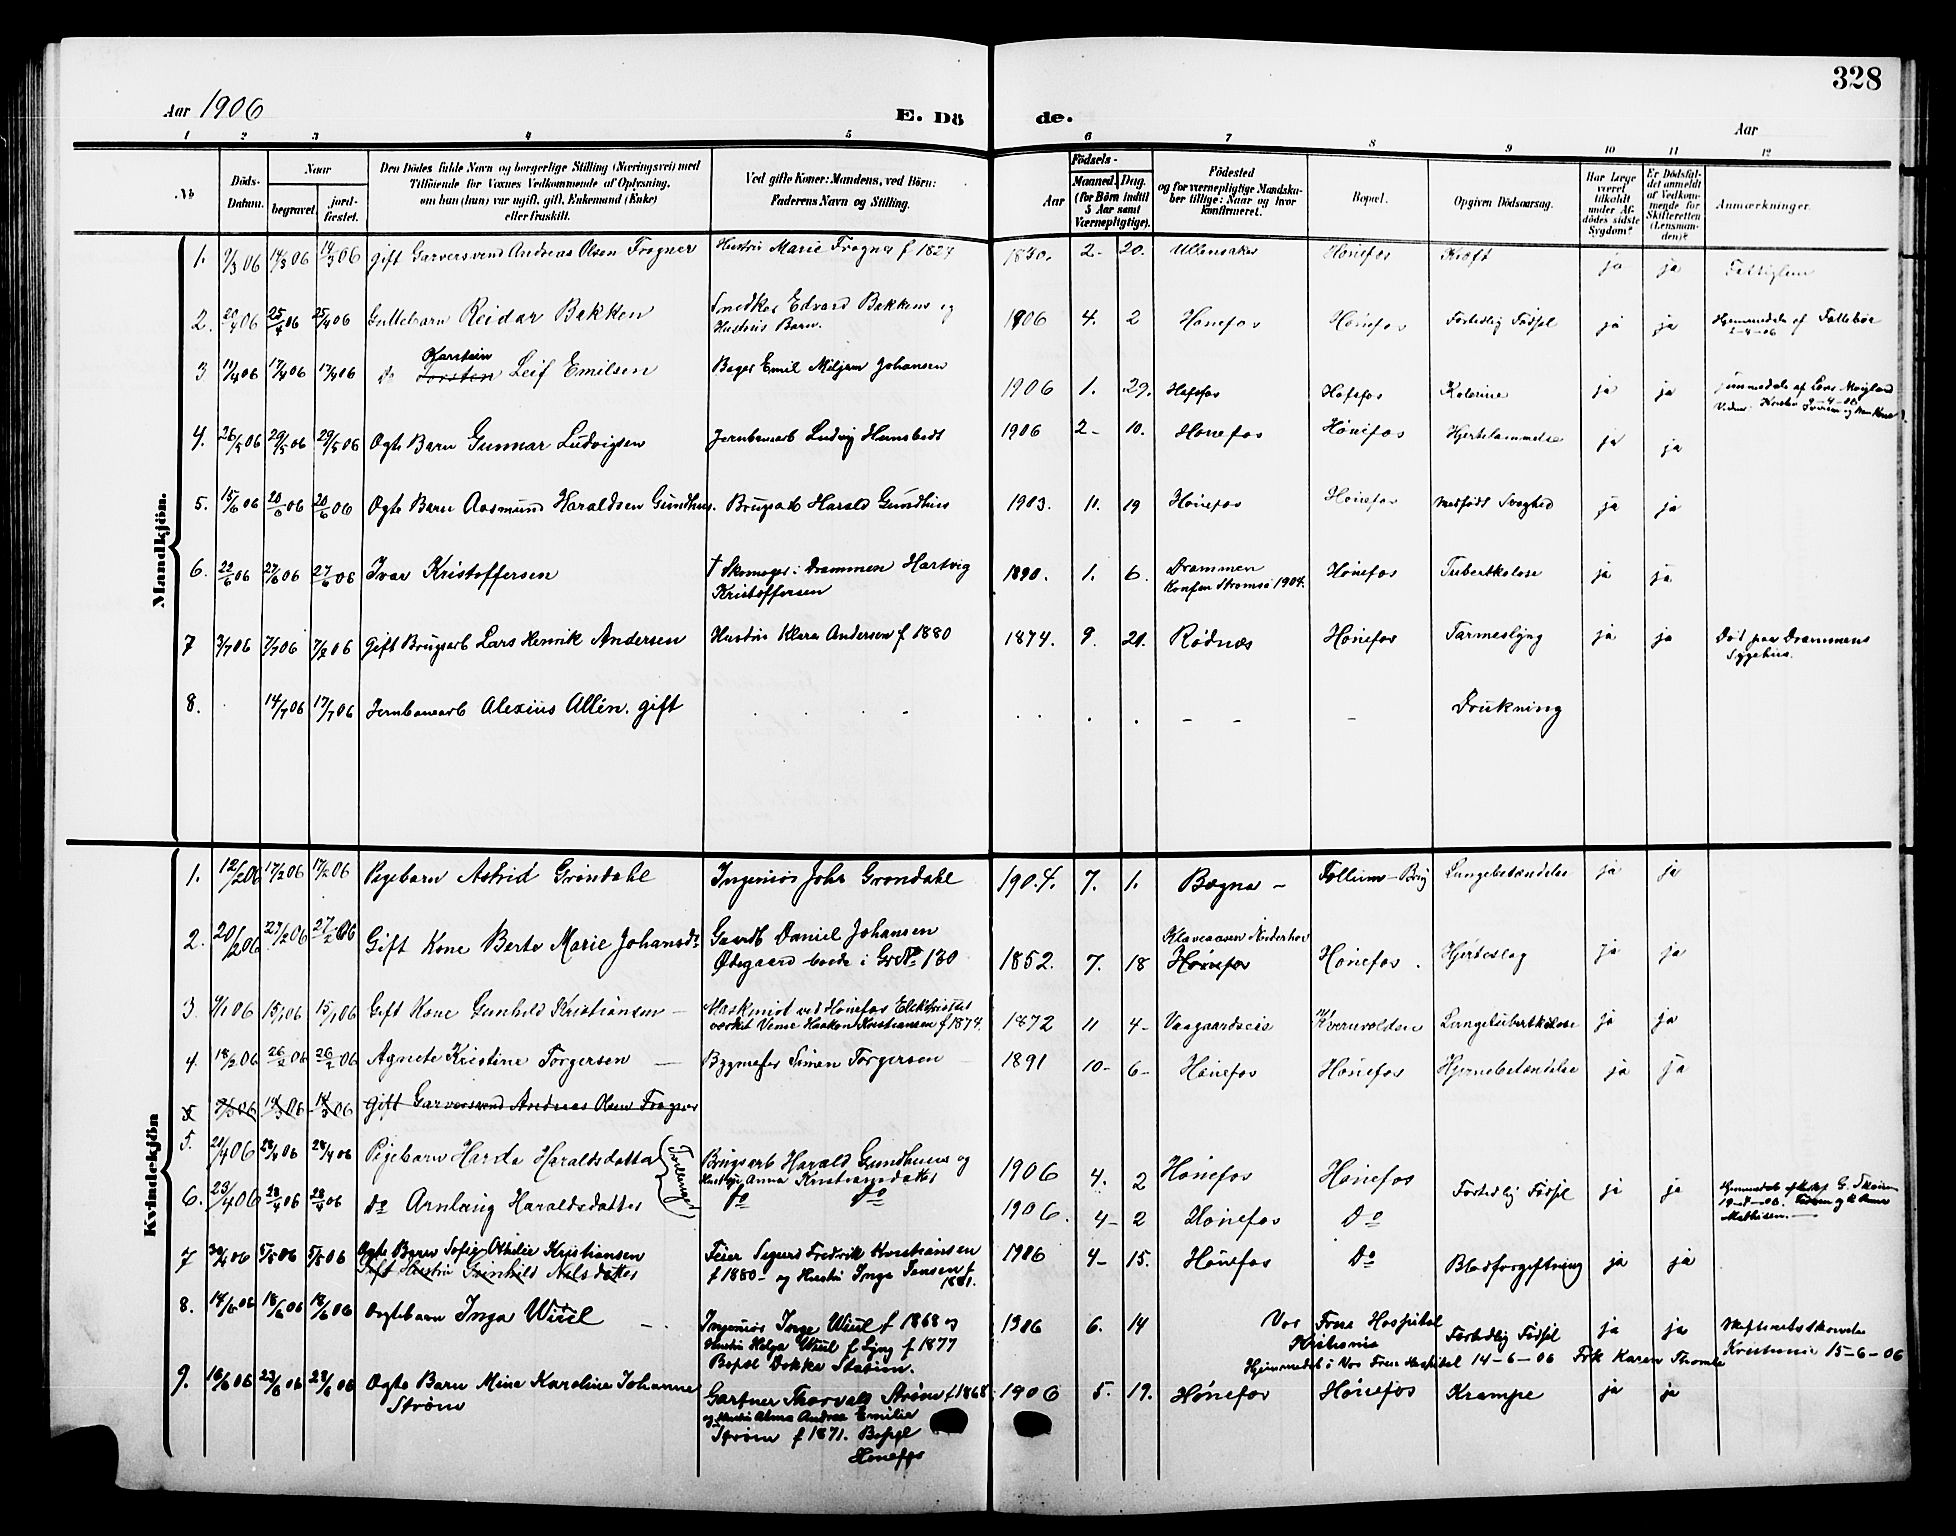 328
Aar 1906
E. Dö
de.
Aar
1 2 3 4 5 6 7 8 9 10 11 12
No
Döds-
Datum.
Naar
begravet.
jord-
fæstet.
Den Dödes fulde Navn og borgerlige Stilling (Næringsvei) med
Tilföiende for Voxnes Vedkommende af Oplysning,
om han (hun) var ugift, gift, Enkemand (Enke)
eller fraskilt.
Ved gifte Koner: Mandens, ved Börn:
Faderens Navn og Stilling.
Födsels-
Aar
Maaned. Dag.
(for Börn indtil
5 Aar samt
Værnepligtige).
Födested
og for værnepligtige Mandska-
ber tillige: Naar og hvor
konfirmeret.
Bopæl.
Opgiven Dödsaarsag.
Har Læge
været
tilkaldt
under Af-
dödes sidste
Sygdom?
Er Dödsfal-
det anmeldt
af Vedkom-
mende for
Skifteretten
(Lensman-
den)?
Anmærkninger.
Mandkjön.
1. 9/3 06 14/3 06 14/3 06 gift Garversvend Andreas Olsen Frogner Hustru Marie Frogner f 1827 1830. 2- 20. Ullensaker Hönefos Kræft ja ja Fattiglem
2. 20/4 06 25/4 06 25/4 06 Guttebarn Reidar Bakken Snedker Edvard Bakkens og
Hustrus Barn. 1906 4. 2 Hönefos Hönefos Fortidlig Födsel ja ja Hjemmedøbt af
3 11/4 06 17/4 06 17/4 06 do Torsten Karstein Leif Emilsen Bager Emil Johansen 1906 1. 29. Hofsfos Hofsfos Kolerine ja ja
4. 26/5 06 29/5 06 29/5 06 Ogte Barn Gunnar Ludvigsen Jernbanearb Ludvig 1906 2- 10. Hönefos Hönefos Hjertelammelse ja ja
5. 15/6 06 20/6 06 20/6 06 Ogte Barn Aasmund Haraldsen Gundhus. Brugsarb Harald Gundhus 1903. 11. 19 Hönefos Hönefos Medfödt Svaghed ja ja
6. 22/6 06 27/6 06 27/6 06 Ivar Kristoffersen † Skomager i Drammen Hartvig
Kristoffersen 1890. 1. 6. Drammen
Konfer Strömsö 1904. Hönefos Tuberkulose ja ja
7 3/7 06 7/7 06 7/7 06 Gift Brugsarb Lars Henrik Andersen Hustru Klara Andersen f 1880 1874. 9. 20. Rödnæs Hönefos Tarmeslyng ja ja Död paa Drammens
Sygehus.
8. 14/7 06 17/7 06 Jernbanearb Alexius Allin. gift Drukning
Kvindekjön
1. 12/2 06 17/2 06 17/2 06 Pigebarn Astrid Gröndahl Ingeniör Johs Gröndahl 1904. 7. 1. Bægna - Follum-Brug Lungebetændelse ja ja
2. 20/2 06 27/2 06 27/2 06 Gift Kone Berte Marie Johansdr Gaardb Daniel Johansen
Ødegaard boede i Gr No 130 1852. 7. 18 Hönefos Hönefos. Hjerteslag ja ja
3. 9/1 06 15/1 06 15/1 06 Gift Kone Gunhild Kristiansen - Maskinist ved Hönefos Elektricitets
værket Haakon Kristiansen f 1874. 1872 11 4- Vaagaardseie Kvernvolden Lungetuberkulose ja ja
4. 18/2 06 26/2 06 26/2 06 Agnete Kristine Torgersen - Bygmester Simen Torgersen 1891 10- 6- Hönefos Hönefos Hjernebetændelse ja ja
5 9/3 06 14/3 06 14/3 06 Gift Garversvend Andreas Olsen Frogner
5. 21/4 06 28/4 06 28/4 06 Pigebarn Harda Haraldsdatter Tvillinger Brugsarb Harald Gundhuus og
Hustru Anna Kristiansdatter 1906 4. 2 Hönefos Hönefos
6. 23/4 06 28/4 06 28/4 06 do Arnlaug Haraldsdatter do do 1906. 4- 2 Hönefos Do Fortidlig Födsel ja ja
7 30/4 06 5/5 06 5/5 06 Ogte Barn Sofie Othilie Kristiansen
Gift Hustru Gunhild Nelsdatter Feier Sigurd Fredrik Kristiansen
f 1880- og Hustru Inga Jensen f
1881. 1906 4- 15. Hönefos Do Blodforgiftning ja ja
8. 14/6 06 18/6 06 18/6 06 Ogtebarn Inga Wiul - Ingeniör Inge Wiul f 1868 og
Hustru Helga Wiul f Lyng f 1877
Bopæl Dokka Station. 1906 6. 14 Vor Frue Hospital
Kristiania Fortidlig Födsel ja ja
Hjemmedöbt i Vor Frue Hospital 14-6-06 Frk Karen Kristiania 15-6-06
9. 16/6 06 23/6 06 23/6 06 Ogte Barn Mina Karoline Johanne
Ström Gartner Thorvald Ström f 1868
og Hustru Alma Andrea Emilie
Ström f 1871. Bopæl
Hönefos 1906 5. 19. Hönefos Hönefos Krampe ja ja